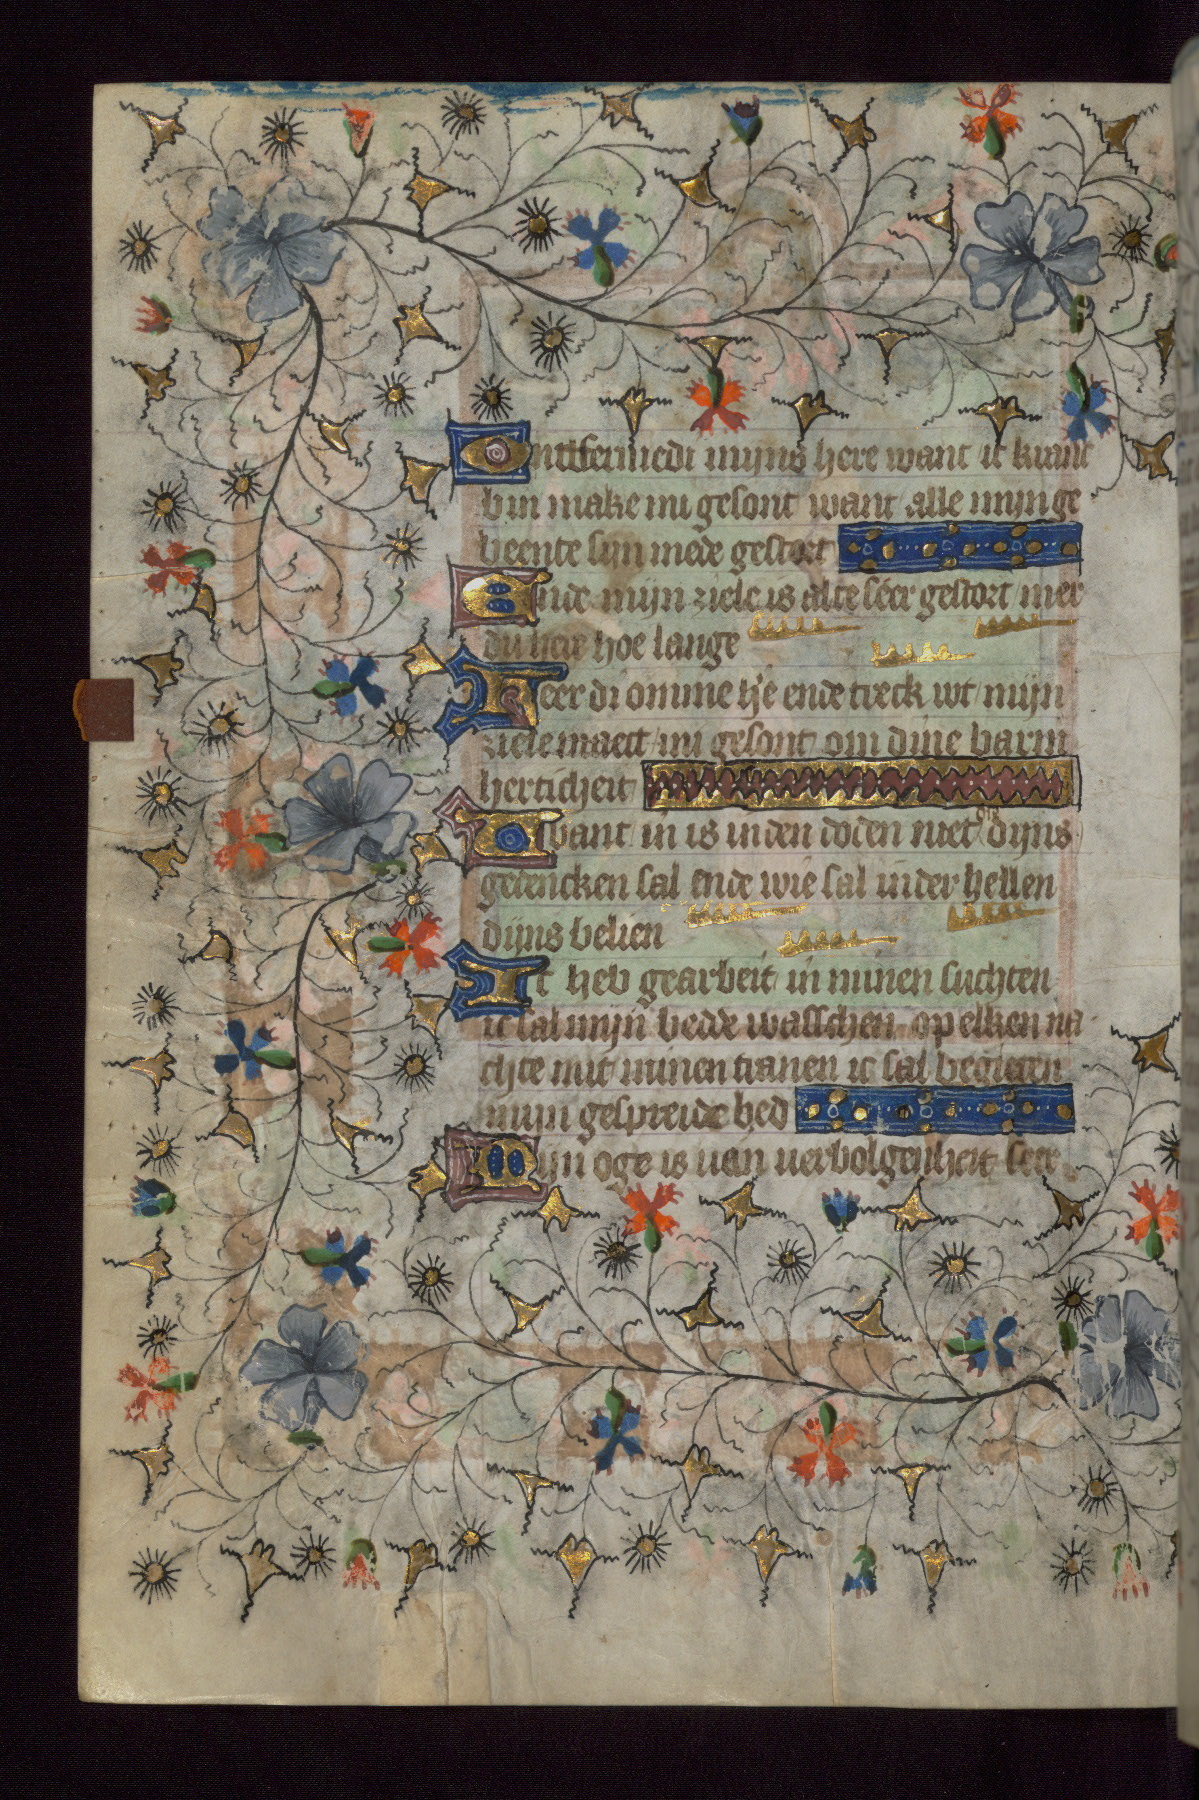 Ontfermedi mijns here want ic kranc
bin make mi gesont want alle mijnge
beente sijn mede gestort
Ende mijn ziele is alte seer gestort mer
du here hoe lange
Keer di omme h'e ende treck wt mijn
ziele maect mi gesont om dine barm
herticheit
Want in is inden doden niet die dijns
gedencken sal ende wie sal inder hellen
dijns belien
Ic heb gearbeit in minen suchten
ic sal mijn bedde wasschen op elken na
chte mit minen tranen ic sal begieten
mijn gespreide bed
Mijn oge is van verbolgenheit seer